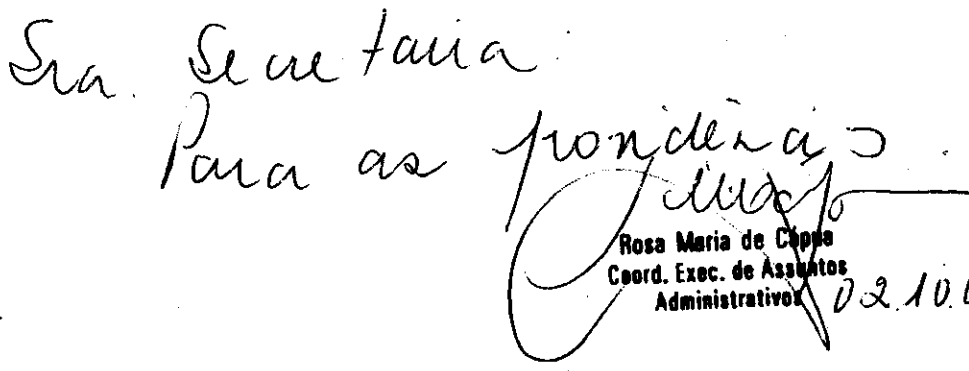 Sra. Secretaria
Para as providências.
Rosa Maria de Cápua
Coord. Exec. de Assuntos
Administrativos 02.10.